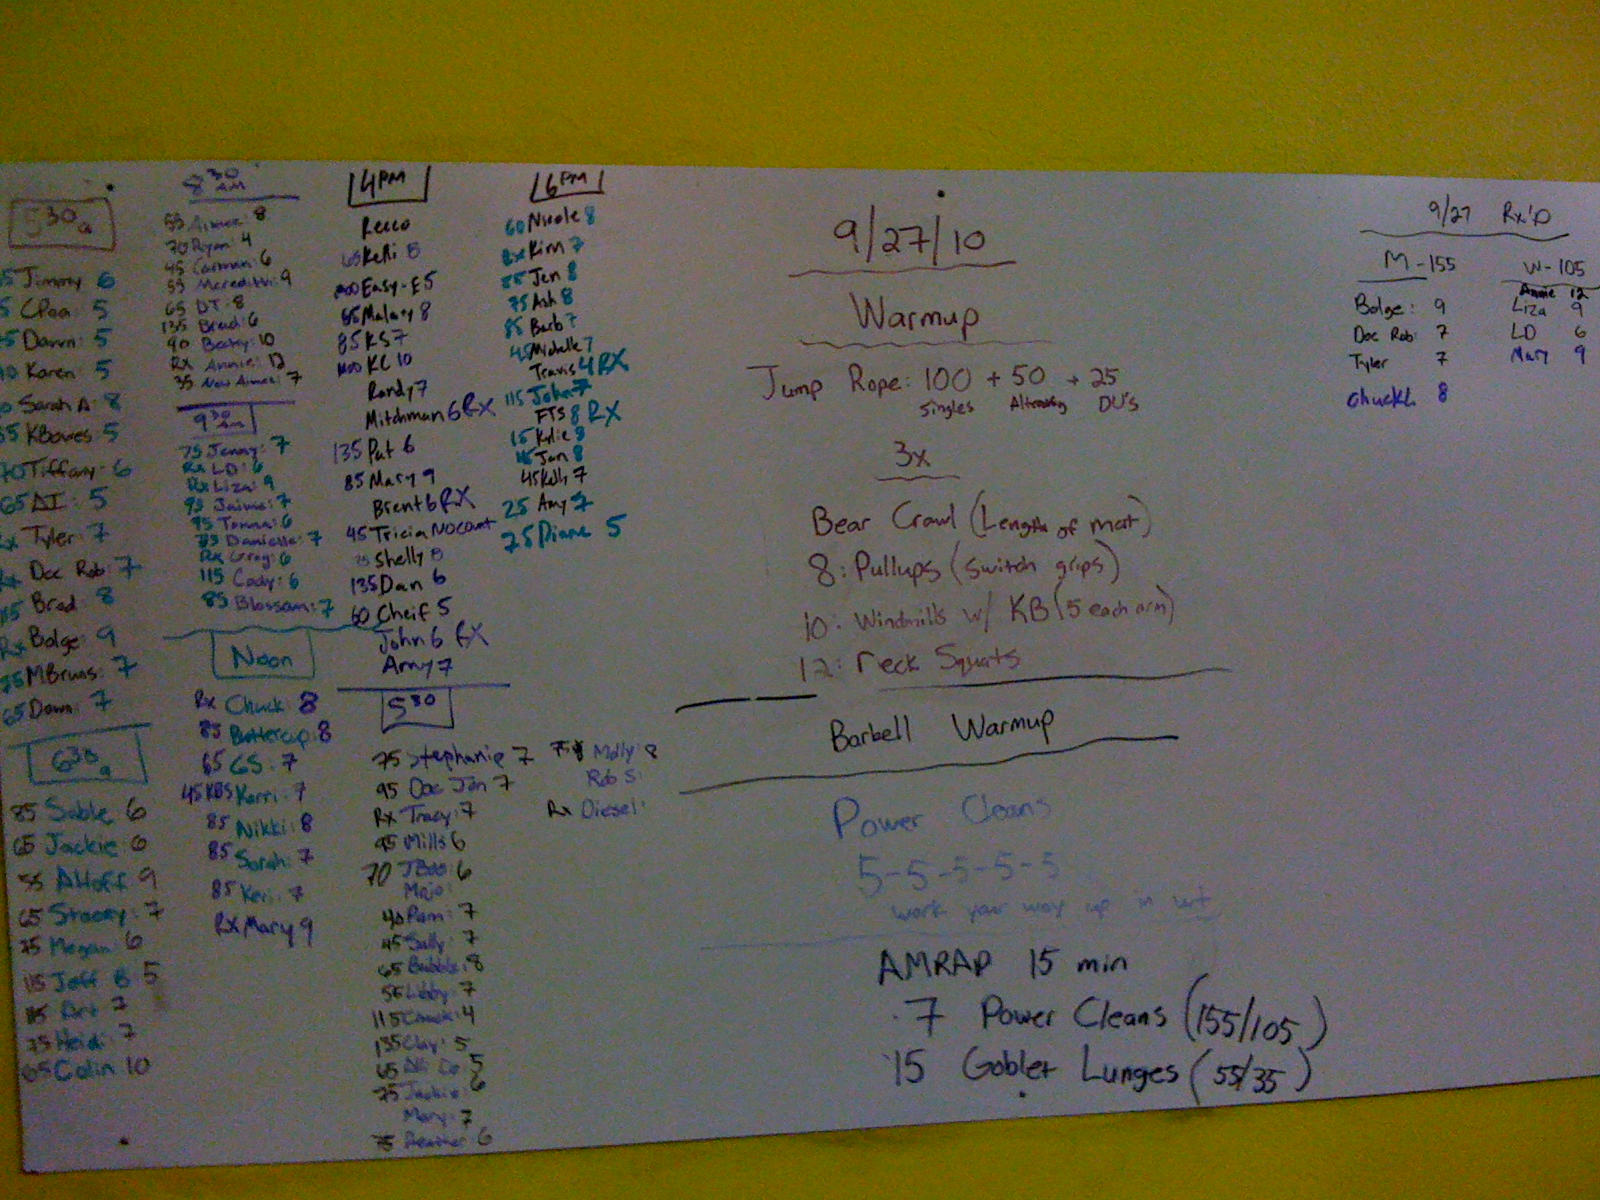 5:30a
Jimmy 6
5
Dawn: 5
Karen: 5
Sarah A: 8
KBowes 5
70 Tiffany: 6
65 5
Rx Tyler: 7
Rx Doc Rob: 7
Brad: 8
Rx Bolge: 9
75 MBruns: 7
65 Dawn: 7
6:30a
85 Sable: 6
65 Jackie: 6
55 AHoff 9
65 Stacey: 7
75 Megan: 6
115 Jeff B 5
115 Art 7
75 Heidi: 7
65 Colin 10
8:30 AM
55 Aimee: 8
70 Ryan: 4
45 Carman: 6
55 Meredith: 9
65 DT: 8
135 Brad: 6
90 Becky: 10
Rx Annie: 12
35 New Aimee: 7
9:30 AM
75 Jenny: 7
Rx LD: 6
Rx Liza: 9
95 Jaime: 7
95 6
75 Danielle: 7
Rx Greg: 6
115 Cody: 6
85 Blossom: 7
Noon
Rx Chuck 8
85 Buttercup: 8
65 GS: 7
45 KBS Kerri: 7
85 Nikki: 8
85 Sarah: 7
85 Keri: 7
Rx Mary 9
4PM
Recco
65 Kelli 8
Easy-E 5
65 Malary 8
85 KS 7
KC 10
Randy 7
Mitchman 6 RX
135 Pat 6
85 Mary 9
Brent 6 RX
45 Tricia No count
Shelly 8
135 Dan 6
60 Cheif 5
John 6 RX
Amy 7
5:30
75 Stephanie 7
95 Doc Jon 7
Rx Tracy: 7
95 Mills 6
70 JBoo: 6
Mojo:
Pam: 7
45 Sally: 7
65 Bubble: 8
55 Libby: 7
115 Chuck: 4
135 Clay: 5
65 5
75 Jackie: 6
Mary: 7
75 Heather: 6
75 Molly: 8
Rob S:
Rx Diesel:
6PM
60 Nicole 8
Rx Kim 7
85 Jen 8
75 Ash 8
85 Barb 7
45 Michelle 7
Travis 4 RX
115 John 7
FTS 8 RX
15 Kylie 8
Jan 8
45 Kelly 7
25 Amy 7
75 Diane 5
9/27/10
Warmup
Jump Rope: 100 + 50 + 25
Singles Alternating DU's
3x
Bear Crawl (Length of mat)
8: Pullups (switch grips)
10: Windmills w/ KB (5 each arm)
12: Peck Squats
Barbell Warmup
Power Cleans
5-5-5-5-5
work your way up in wt
AMRAP 15 min
7 Power Cleans (155/105)
15 Goblet Lunges (55/35)
9/27 Rx'D
M - 155
Bolge: 9
Doc Rob: 7
Tyler 7
ChuckL 8
W - 105
Annie 12
Liza 9
LD 6
Mary 9